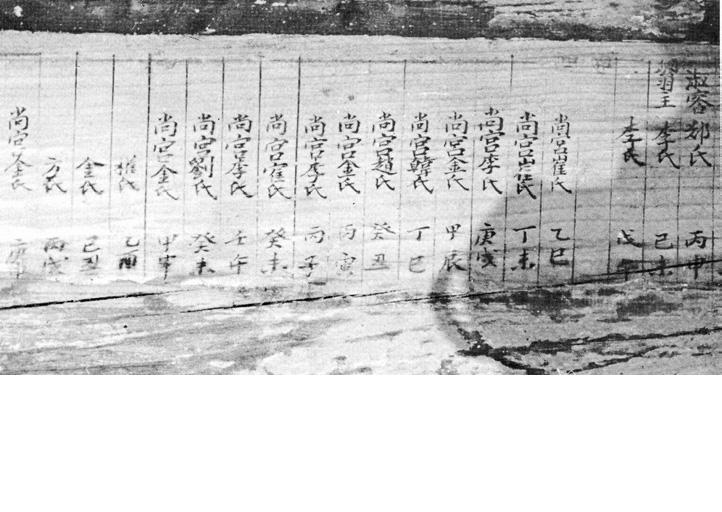 淑容鄭氏 丙申
翁主李氏 己未
李氏 戊午
尚宮崔氏 乙巳
尚宮崔氏 丁未
尚宮李氏 庚戌
尚宮金氏 甲辰
尚宮韓氏 丁巳
尚宮趙氏 癸丑
尚宮金氏 丙寅
尚宮李氏 丙子
尚宮崔氏 癸未
尚宮李氏 壬午
尚宮劉氏 癸未
尚宮金氏 甲寅
氏 乙酉
金氏 己丑
方氏 丙戌
尚宮金氏 庚申